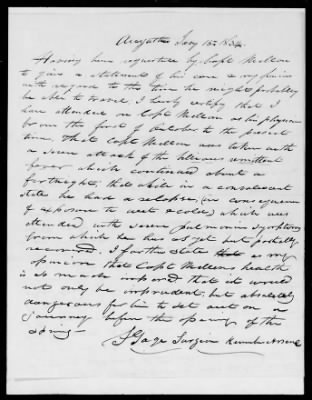 Augusta Jany 15th 183
Having been requested by Capt Mellon
to give a statement of his case & my opinion
with regard to the time he might probably
be able to travel, I hereby certify that I
have attended on Capt Mellon as his physician
from the first of October to the present
time. That Capt Mellon was taken with
a severe attack of the bilious remittent
fever which continued about a
fortnight, that while in a convalescent
state he had a relapse, (in consequence
of exposure to wet & cold) which was
attended with severe pulmonic symptoms
from which he has as yet but partially
recovered. I further state as my
opinion that Capt Mellon's health
is so much impaired that it would
not only be imprudent, but absolutely
dangerous for him to set out on a
journey before the opening of the
spring
Surgeon